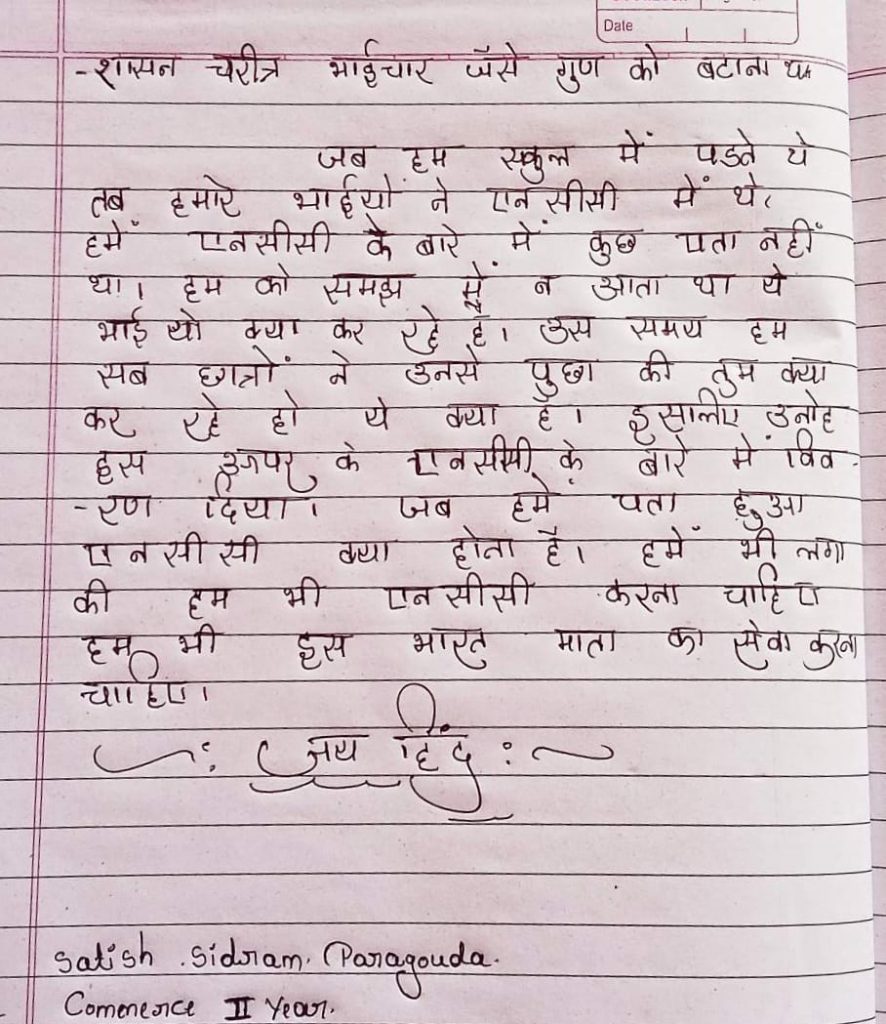 Date
-शासन चरीत्र भाईचार जैसे गुण को बटाना था
जब हम स्कुल में पडते थे
तब हमारे भाईयों ने एनसीसी में थे,
हमें एनसीसी के बारे में कुछ पता नहीं
था। हम को समझ में न आता था ये
भाई यो क्या कर रहे है। उस समय हम
सब छात्रों ने उनसे पुछा की तुम क्या
कर रहे हो ये क्या है। इसालिए उनोह
हस ऊपर के एनसीसी के बारे में विव-
-रण दिया। जब हमें पता हुआ
एनसीसी क्या होता है। हमें भी लगा
की हम भी एनसीसी करना चाहिए
हम भी इस भारत माता का सेवा करना
चाहिए।
जय हिंद
Satish .Sidram. Paragouda.
Commerce II Year.